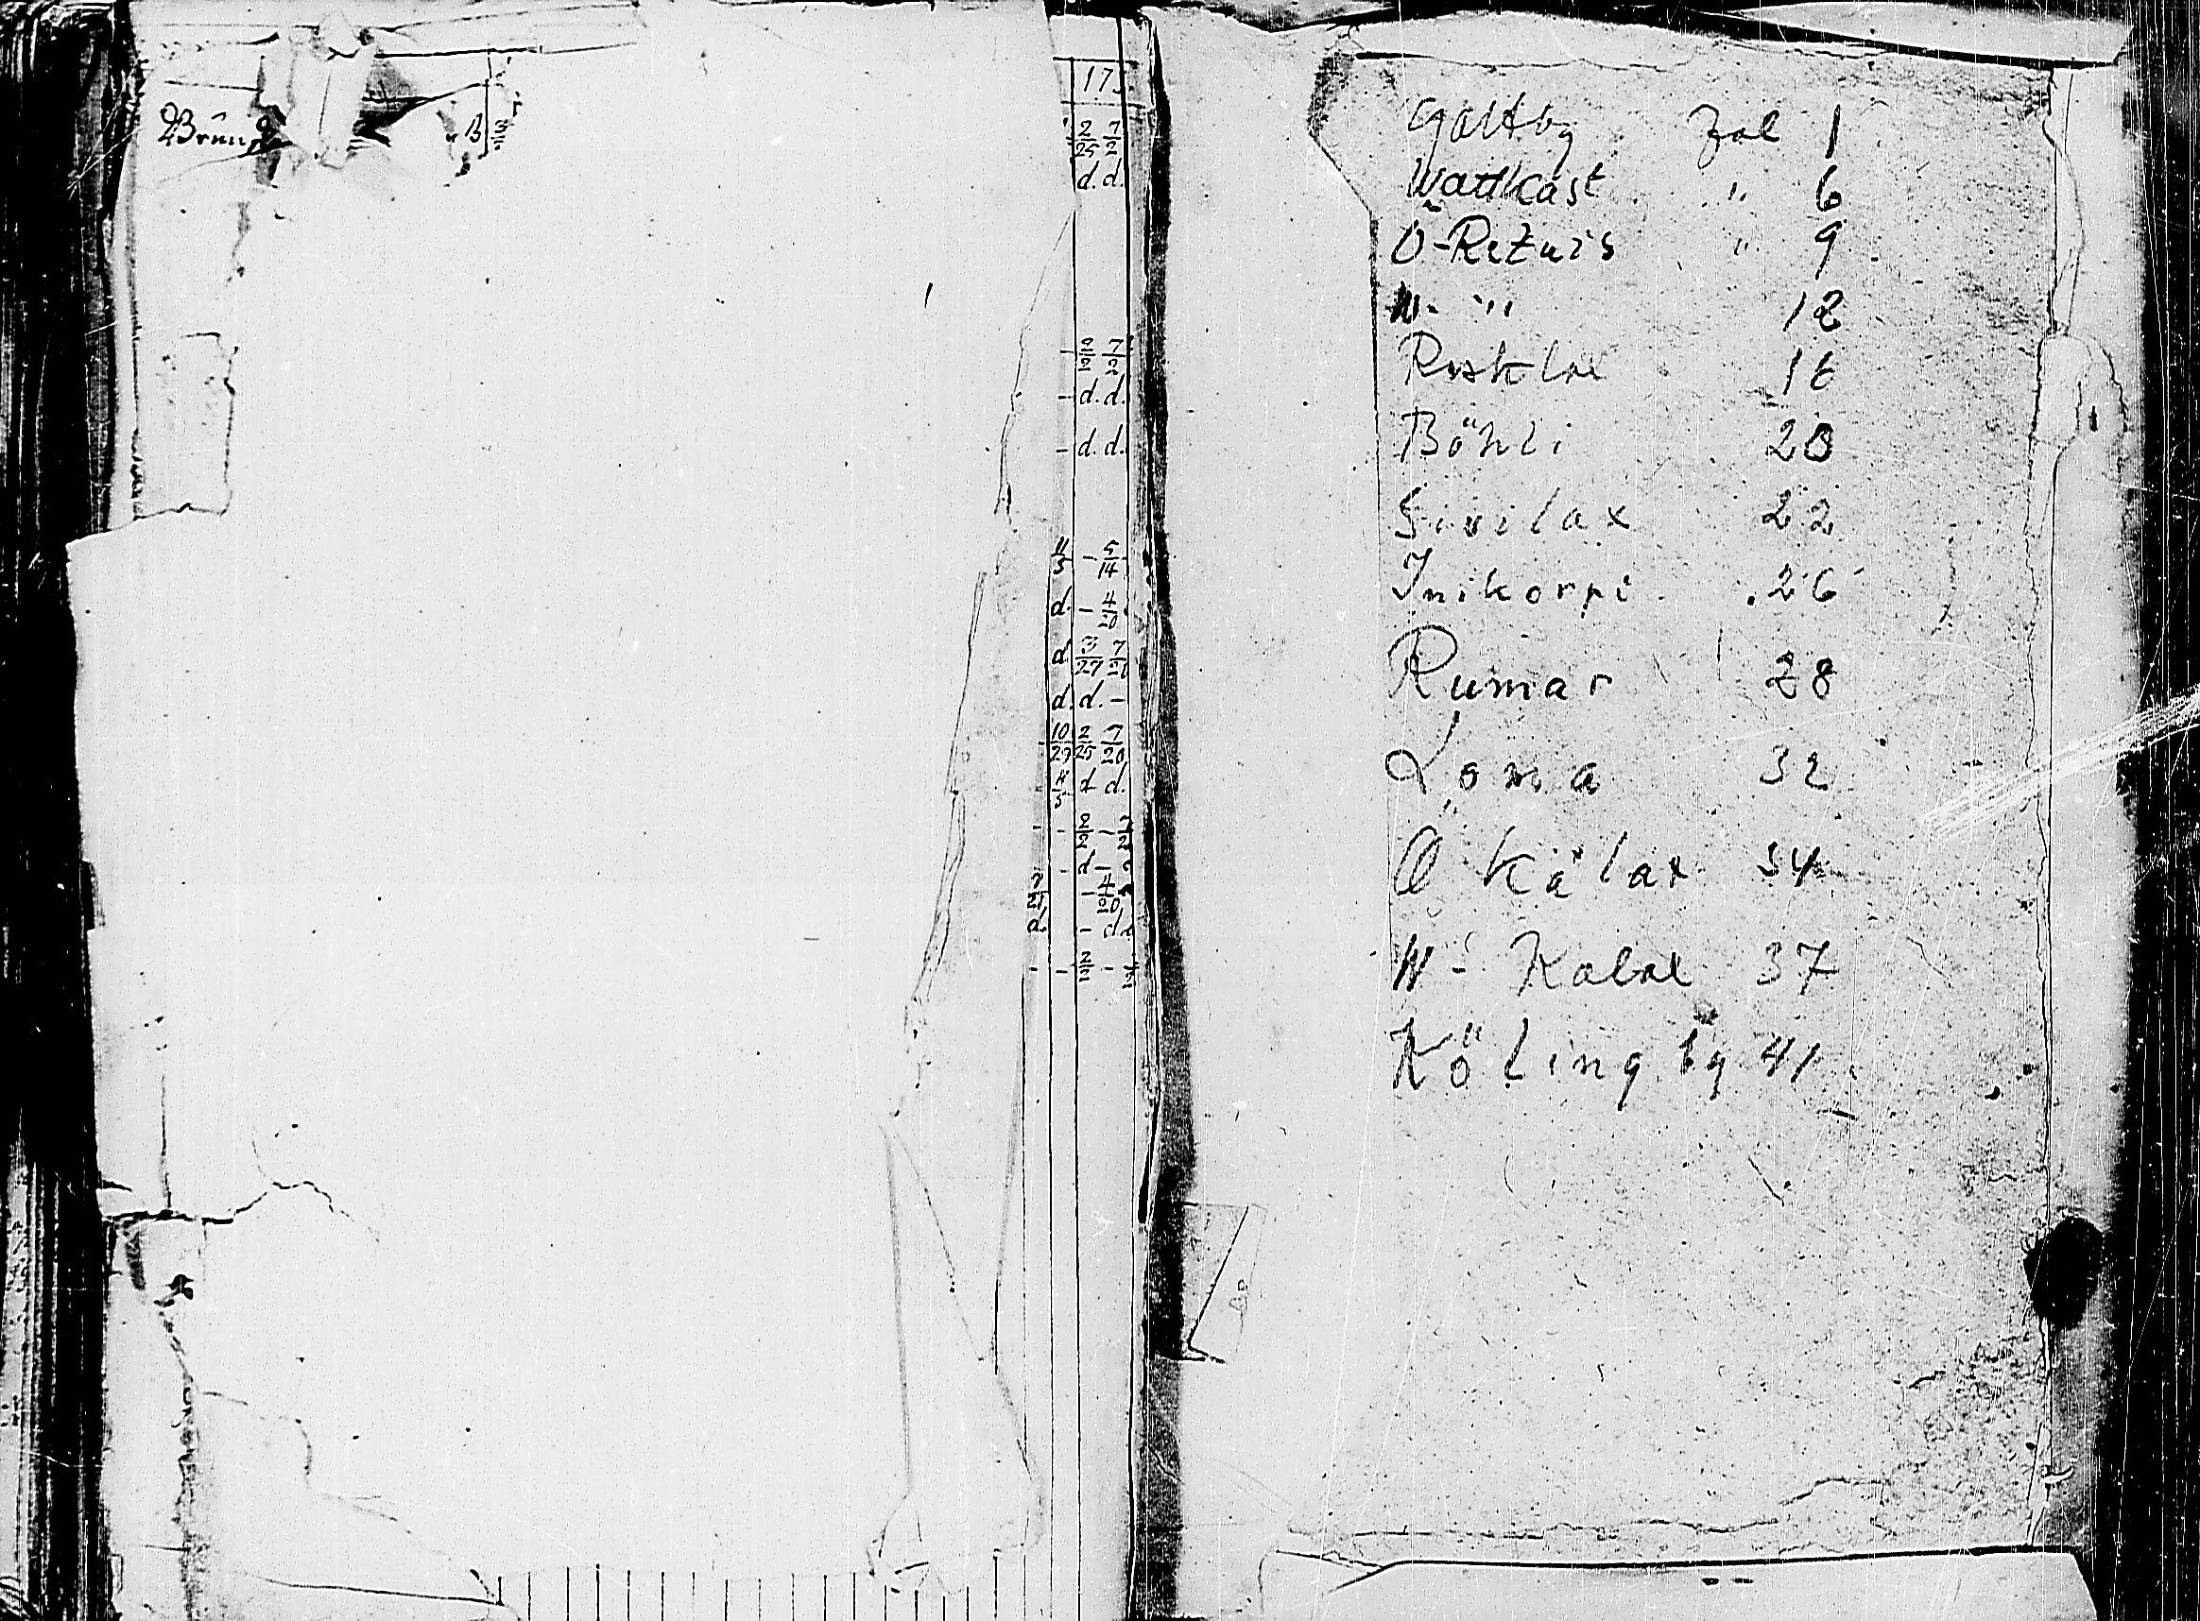 Brünn
B
17
2/25 7/2
d. d.
2/2 7/2
- d. d.
- d. d.
11/5 - 5/14
d. - 4/20
d 3/27 7/21
d. d. -
10/29 2/25 7/20
d d.
- - 2/2 -
- d -
- 4/20
d - d
- - 2/2 -
Galtby Fol 1
Wattkast " 6
Ö-Retais " 9
W- " 12
Rosklax 16
Böhli 20
Sivilax 22
Inikorpi 26
Rumar 28
Loma 32
Ö Kälax 34
W- Kalax 37
Köling by 41